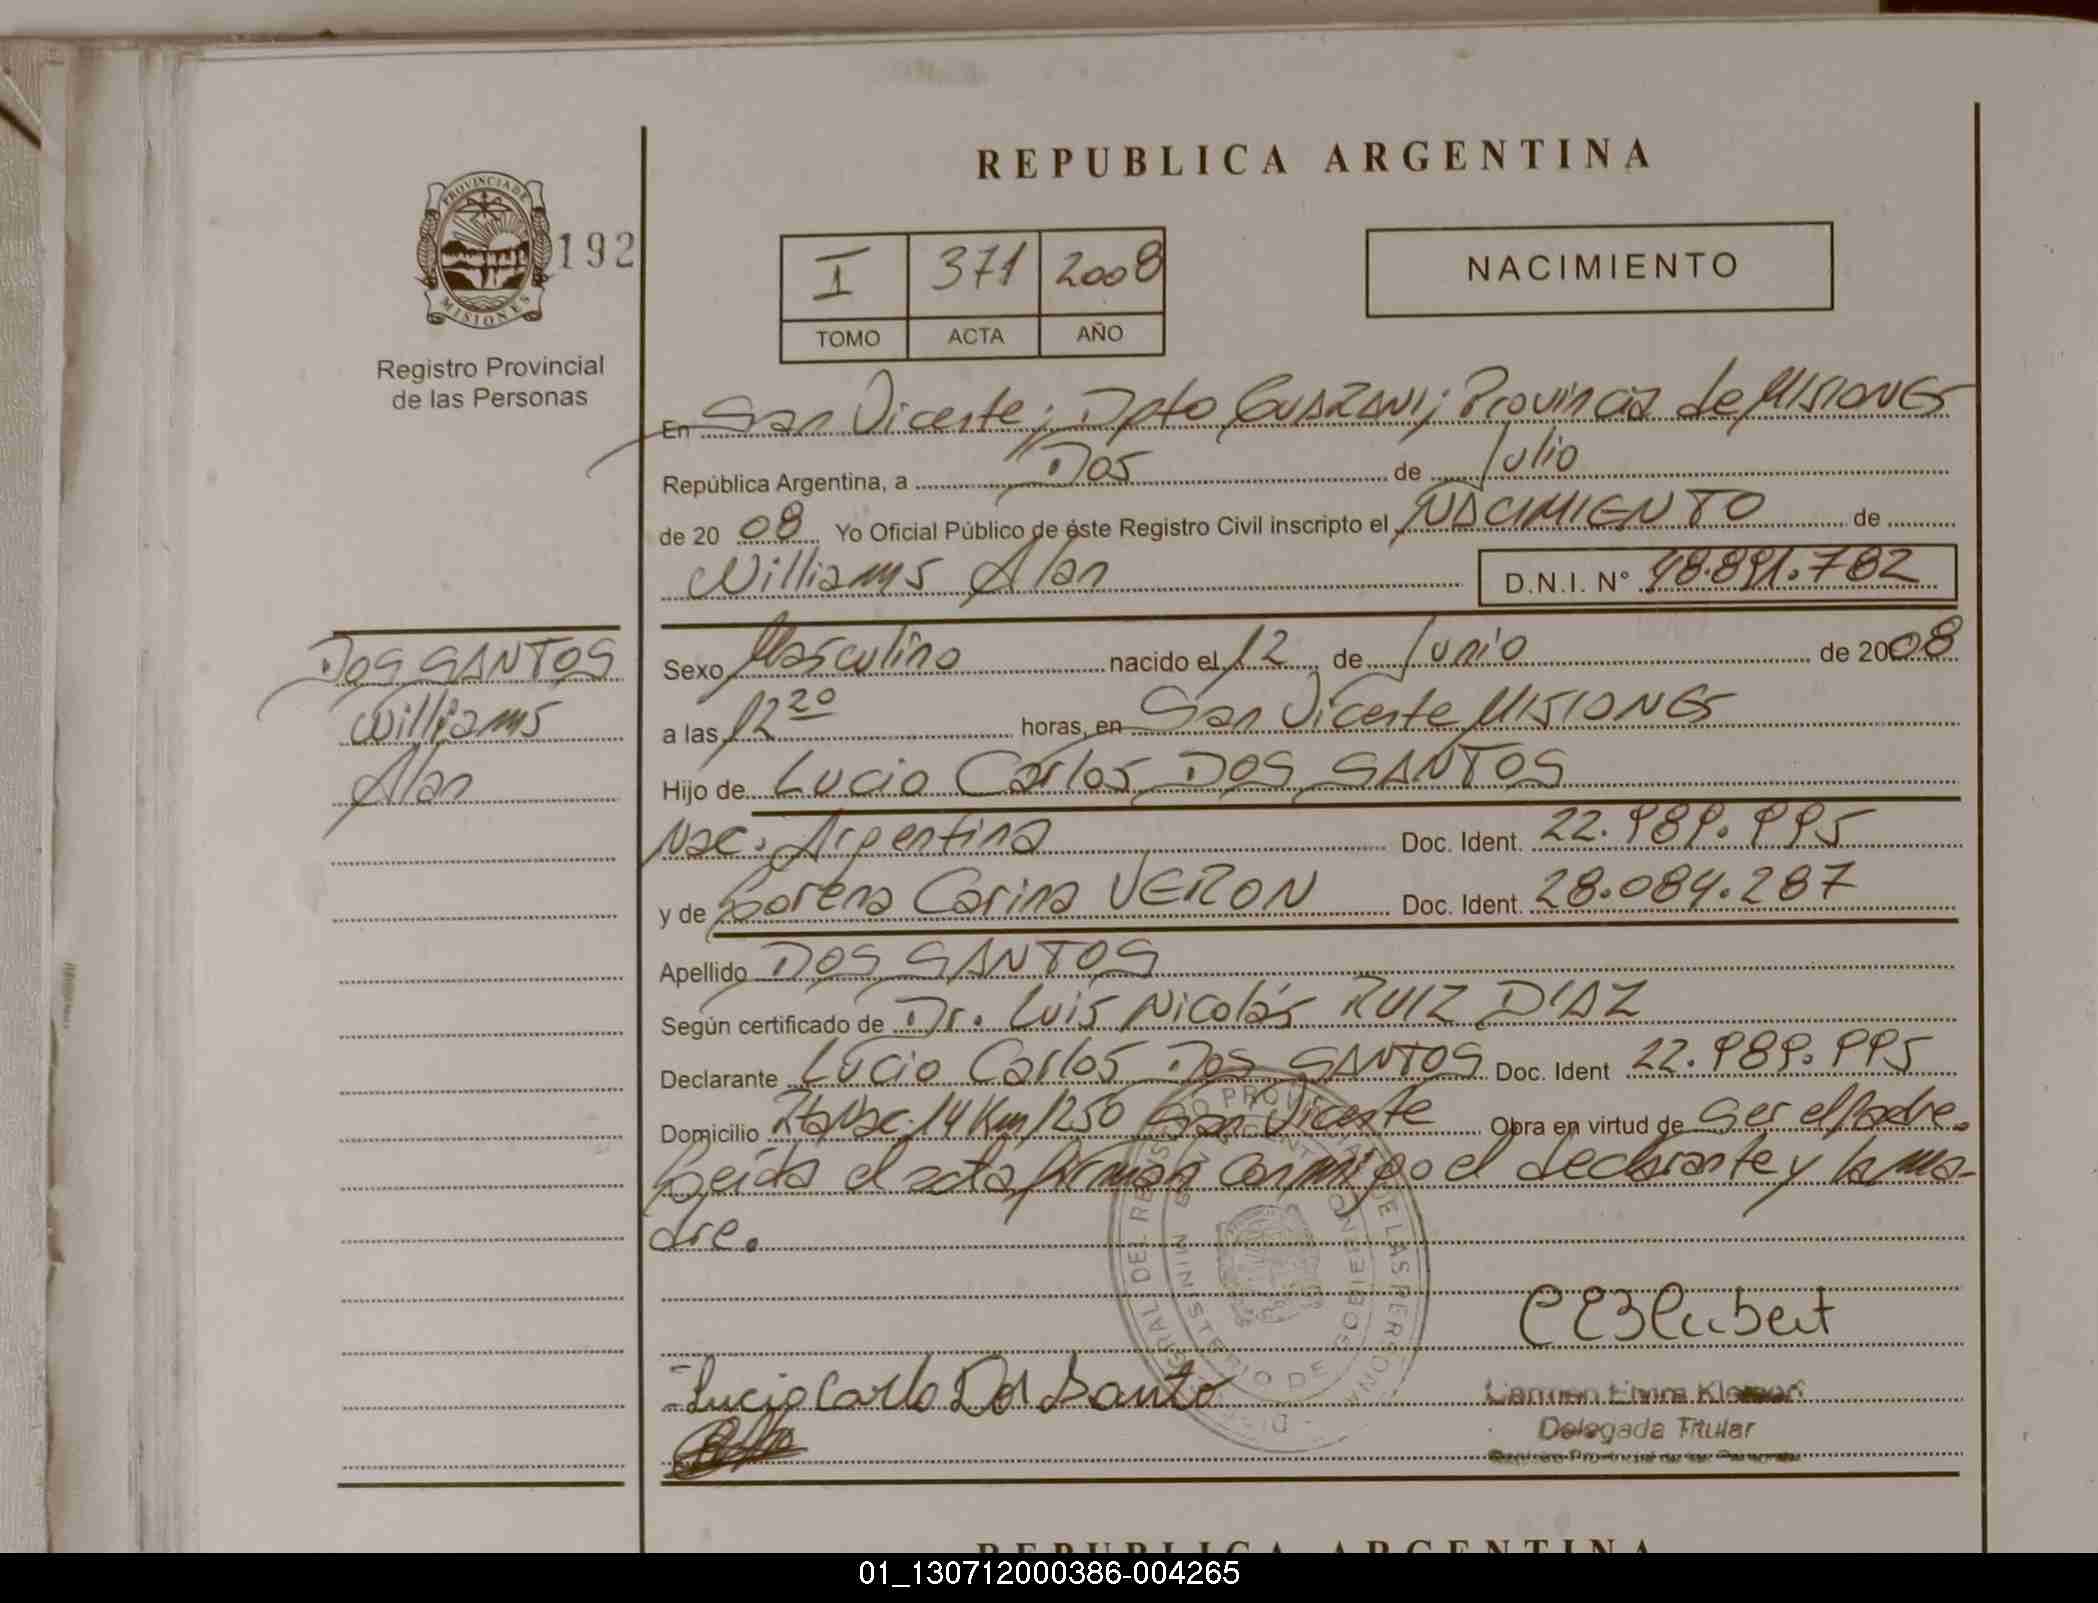 REPUBLICA ARGENTINA
PROVINCIA DE
MISIONES
192
Registro Provincial
de las Personas
I 371 2008
TOMO ACTA AÑO
NACIMIENTO
En San Vicente; Dpto GUARANI; Provincia de MISIONES
República Argentina, a Dos de Julio
de 2008 Yo Oficial Público de éste Registro Civil inscripto el NACIMIENTO de
Williams Alan D.N.I. N° 48.891.782
DOS SANTOS
Williams
Alan
Sexo Masculino nacido el 12 de Junio de 2008
a las 12 20 horas, en San Vicente MISIONES
Hijo de Lucio Carlos DOS SANTOS
Nac. Argentina Doc. Ident. 22.989.995
y de Lorena Carina VERON Doc. Ident. 28.084.287
Apellido DOS SANTOS
Según certificado de Dr. Luis Nicolás RUIZ DÍAZ
Declarante Lucio Carlos DOS SANTOS Doc. Ident 22.989.995
Domicilio Rta Nac. 14 Km 1250 San Vicente Obra en virtud de ser el padre.
Leida el acta firman conmigo el declarante y la ma-
dre.
Lucio Carlo Dos Santo
Carmen Elvira
Delegada Titular
Registro Provincial de las Personas
MINISTERIO DE GOBIERNO
REPUBLICA ARGENTINA
01_130712000386-004265